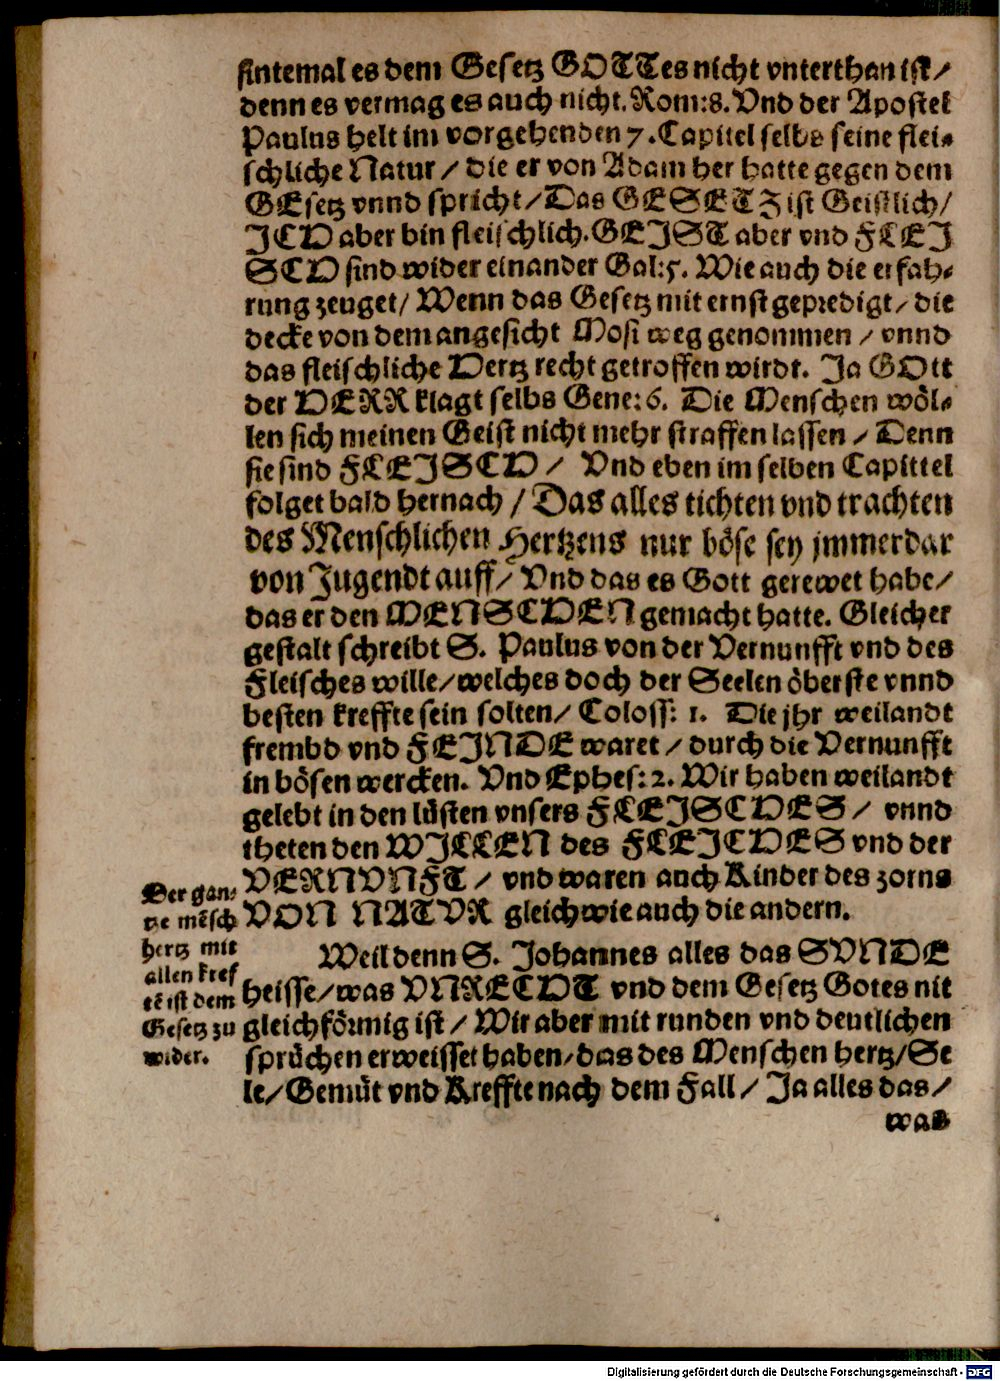 sintemal es dem Gesetz GOTTes nicht vnterthan ist/
denn es vermag es auch nicht. Rom:8. Vnd der Apostel
Paulus helt im vorgehenden 7. Capitel selbs seine flei-
schliche Natur / die er von Adam her hatte gegen dem
GEsetz vnnd spricht / Das GESETZ ist Geistlich/
ICH aber bin fleischlich. GEIST aber vnd FLEI
SCH sind wider einander Gal:5. Wie auch die erfah-
rung zeuget/ Wenn das Gesetz mit ernst gepredigt / die
decke von dem angesicht Mosi weg genommen / vnnd
das fleischliche Hertz recht getroffen wirdt. Ja GOtt
der HERR klagt selbs Gene:6. Die Menschen wöl-
len sich meinen Geist nicht mehr straffen lassen / Denn
sie sind FLEISCH / Vnd eben im selben Capittel
folget bald hernach / Das alles tichten vnd trachten
des Menschlichen Hertzens nur böse sey jmmerdar
von Jugendt auff / Vnd das es Gott gerewet habe/
das er den MENSCHEN gemacht hatte. Gleicher
gestalt schreibt S. Paulus von der Vernunfft vnd des
Fleisches wille / welches doch der Seelen öberste vnnd
besten kreffte sein solten / Coloss: 1. Die jhr weilandt
frembd vnd FEINDE waret / durch die Vernunfft
in bösen wercken. Vnd Ephes: 2. Wir haben weilandt
gelebt in den lüsten vnsers FLEISCHES / vnnd
theten den WILLEN des FLEICHES vnd der
VERNVNFT / vnd waren auch Kinder des zorns
VON NATVR gleich wie auch die andern.
Der gan-
tze mẽsch
hertz mit
allen kref
tẽ ist dem
Gesetz zu
wider.
Weil denn S. Johannes alles das SVNDE
heisse / was VNRECHT vnd dem Gesetz Gotes nit
gleichförmig ist / Wir aber mit runden vnd deutlichen
sprüchen erweisset haben / das des Menschen hertz / Se
le / Gemüt vnd Kreffte nach dem Fall / Ja alles das /
was
Digitalisierung gefördert durch die Deutsche Forschungsgemeinschaft - DFG